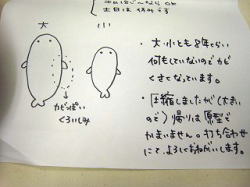 土日は休みです
大
小
カビっぽい
くろいしみ
・大・小とも8年くらい
何もしていないのでカビ
くさくなっています。
・圧縮しましたが(大きい
ので)帰りは原型で
かまいません。打ち合わせ
にて、よろしくおねがいします。